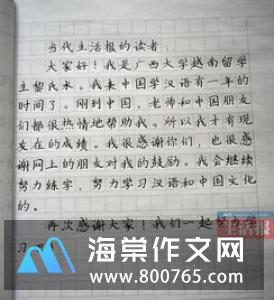 当代生活报的读者：
大家好！我是广西大学越南留学
生黎氏水。我来中国学汉语有一年的
时间了。刚到中国，老师和中国朋友
们都很热情地帮助我。所以我才有现
在的成绩。我很感谢你们，也很感
谢网上的朋友对我的鼓励。我会继续
努力练字，努力学习汉语和中国文化
的。
再次感谢大家！我们一起
习
海棠作文网
www.800765.com